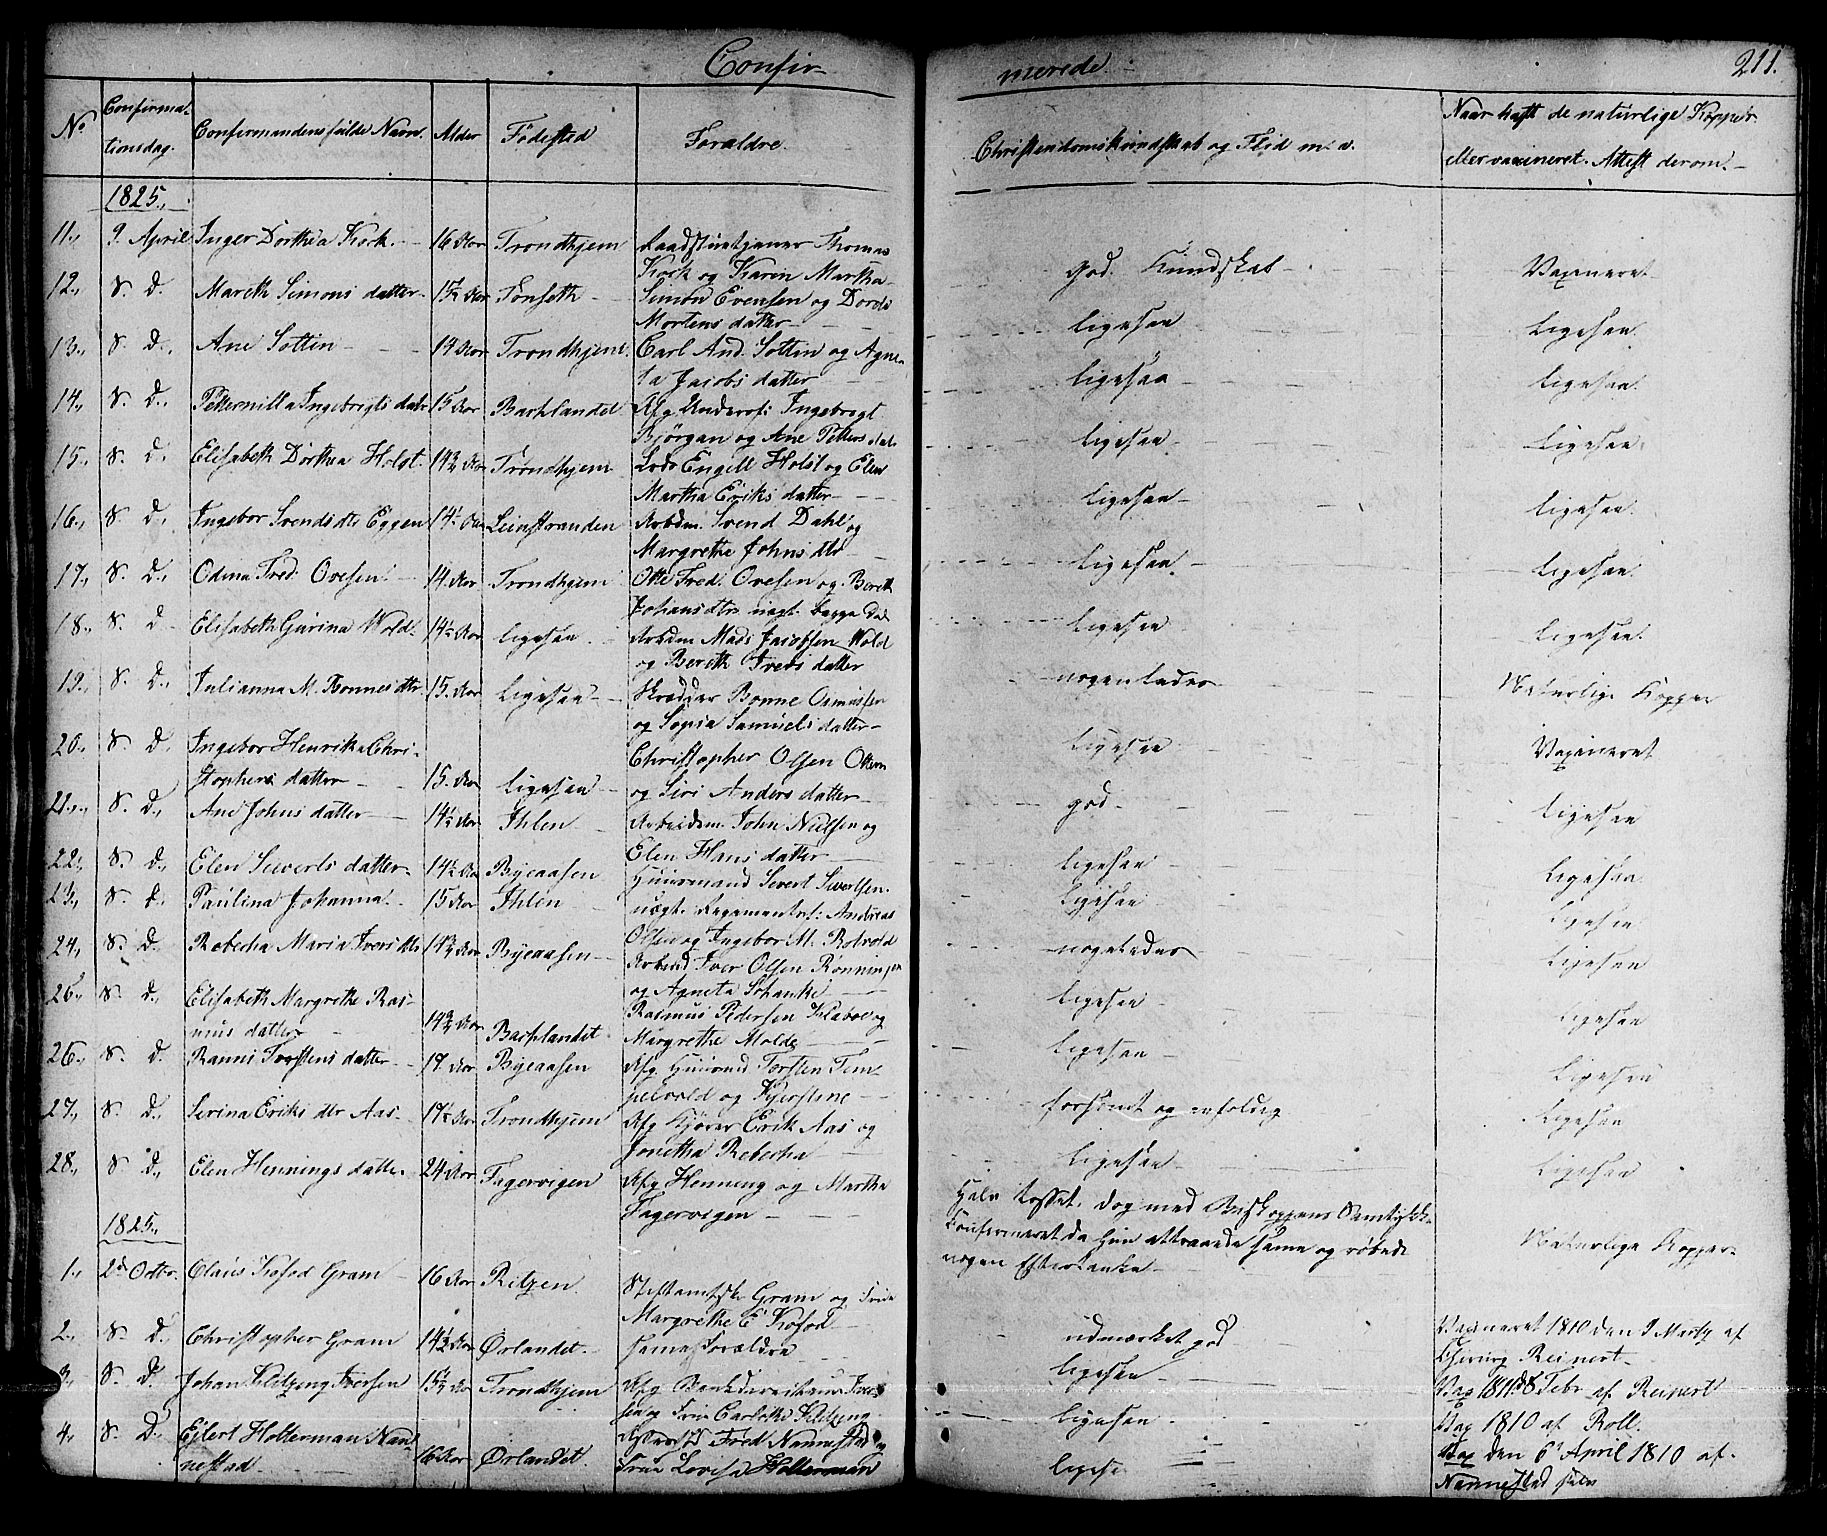 Confir- merede.
211.
No Confirma- tionsdag. Confirmandens fulde Navn. Alder Fødested Forældre. Christendomskundskab og Flid m. v. Naar haft de naturlige Kopper
eller vaccineret. Attest derom.
1825.
11., 9. April Inger Dorthea Kock. 16 Aar Trondhjem Raadstuetjener Thomas
Kock og Karen Martha god Kundskab Vaxineret
12., S. D. Mareth Simonsdatter Aar Tønseth Simon Evensen og Dorde
Mortensdatter ligesaa Ligesaa
13., S. D., Ane Sottin 14 Aar Trondhjem. Carl And. Sottin og Agne-
ta Jacobsdatter ligesaa ligesaa
14., S. D., Petternilla Ingebrigtsdatr 15 Aar Baklandet Afg Underof: Ingebrigt
Bjørgan og Ane Pettersdat. ligesaa Ligesaa
15., S. D. Elisabeth Dorthea Holst 14 3/4 Aar Trondhjem Lods Engell Holst og Elen
Martha Eriksdatter ligesaa ligesaa
16., S. D., Ingebor Svendsdtr Eggen 14 1/2 Aar Leinstranden Arbdm. Svend Dahl og
Margrethe Johnsdtr ligesaa ligesaa
17., S. D., Odina Fred. Ovesen 14 Aar Trondhjem Otte Fred. Ovesen og Bereth
Johansdtr uægt.
18., S. D. Elisabeth Gurina Wold. 14 1/2 Aar ligesaa Arbdm Mads Jacobsen Wold
og Bereth Iversdatter ligesaa ligesaa
19., S. D., Julianna M. Bonnesdtr. 15. Aar Ligesaa Skrædder Bonne Asmussen
og Sopia Samuelsdatter nogenledes Naturlige Kopper
20., S. D., Ingebor Henrika Chri-
stophersdatter 15. Aar ligesaa Christopher Olsen Ottem
og Siri Andersdatter ligesaa Vaxineret
21., S. D., Ane Johnsdatter 14 1/2 Aar Ihlen Arbeidsm. John Nielsen og
Elen Hansdatter god ligesaa
22., S. D., Elen Sivertsdatter 14 1/2 Aar Byeaasen Huusmand Sivert Sivertsen. ligesaa Ligesaa
23., S. D. Paulina Johanna 15 Aar Ihlen uægt. Regimentsf: Andreas
Olsen og Ingebor M. Rotvold Ligesaa Ligesaa
24., S. D. Rebecha Maria Iversdtr 14 3/4 Aar Byeaasen Arbeidsd Iver Olsen Rønningen
og Agneta Schanke nogeledes Ligesaa
26., S. D., Elisabeth Margrethe Ras-
musdatter 14 3/4 Aar Baklandet Rasmus Pedersen Klaboe og
Margrethe Molde ligesaa ligesaa
26., S. D. Ranni Torstensdatter 17 Aar Byeaasen Afg Huusmd Torsten Tem-
pelvold og Kjerstine ligesaa Ligesaa
27., S. D., Serina Eriksdtr Aas Aar Trondhjem Afg Kjører Erik Aas og
Jonetha Rebecha forsømt og enfoldig Ligesaa
28., S. D., Elen Henningsdatter 24 Aar Fagervigen Afg Henning og Martha
Fagervigen ligesaa Ligesaa
Halv tosset, dog med Biskoppens Samtykke
Confirmeret da hun attraaede same og røbede
nogen Eftertanke Naturlige Kopper
1825.,
1., 2de Octbr. Claus Kofod Gram 16 Aar Ritzen Stiftamtsk: Gram og Frue
Margrethe E Kofod udmærket god Vaxineret 1810 den 9 Marty af
Chirurg Reinert
2., S. D., Christopher Gram 14 1/2 Aar Ørlandet. sama Forældre ligesaa Vax 1811 d 8 Febr af Reinert
3., S. D. Johan Klitzing Iversen 15 1/2 Aar Trondhjem Afg Iver-
sen og Frue Klitzing ligesaa Vax 1810 af Roll.
4., S. D., Eilert Holterman Nan-
nestad 16 Aar Ørlandet. Fred Nannestad og
Frue Lovisa Holterman ligesa Vax den 6' April 1810 af
Nannestad selv